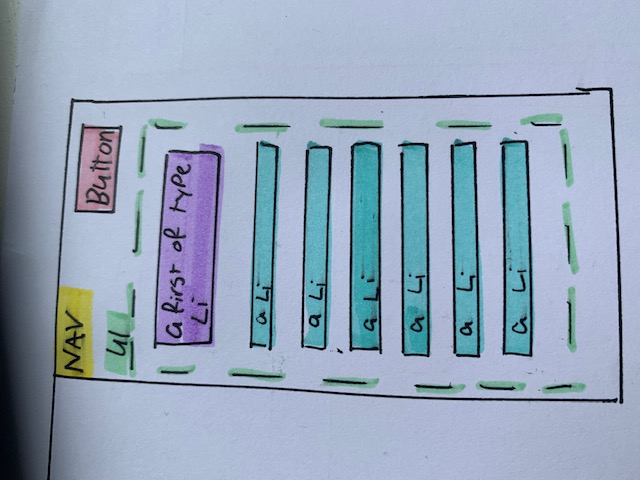 NAV
Button
Ul
a first of type
Li
a Li
a Li
a Li
a Li
a Li
a Li